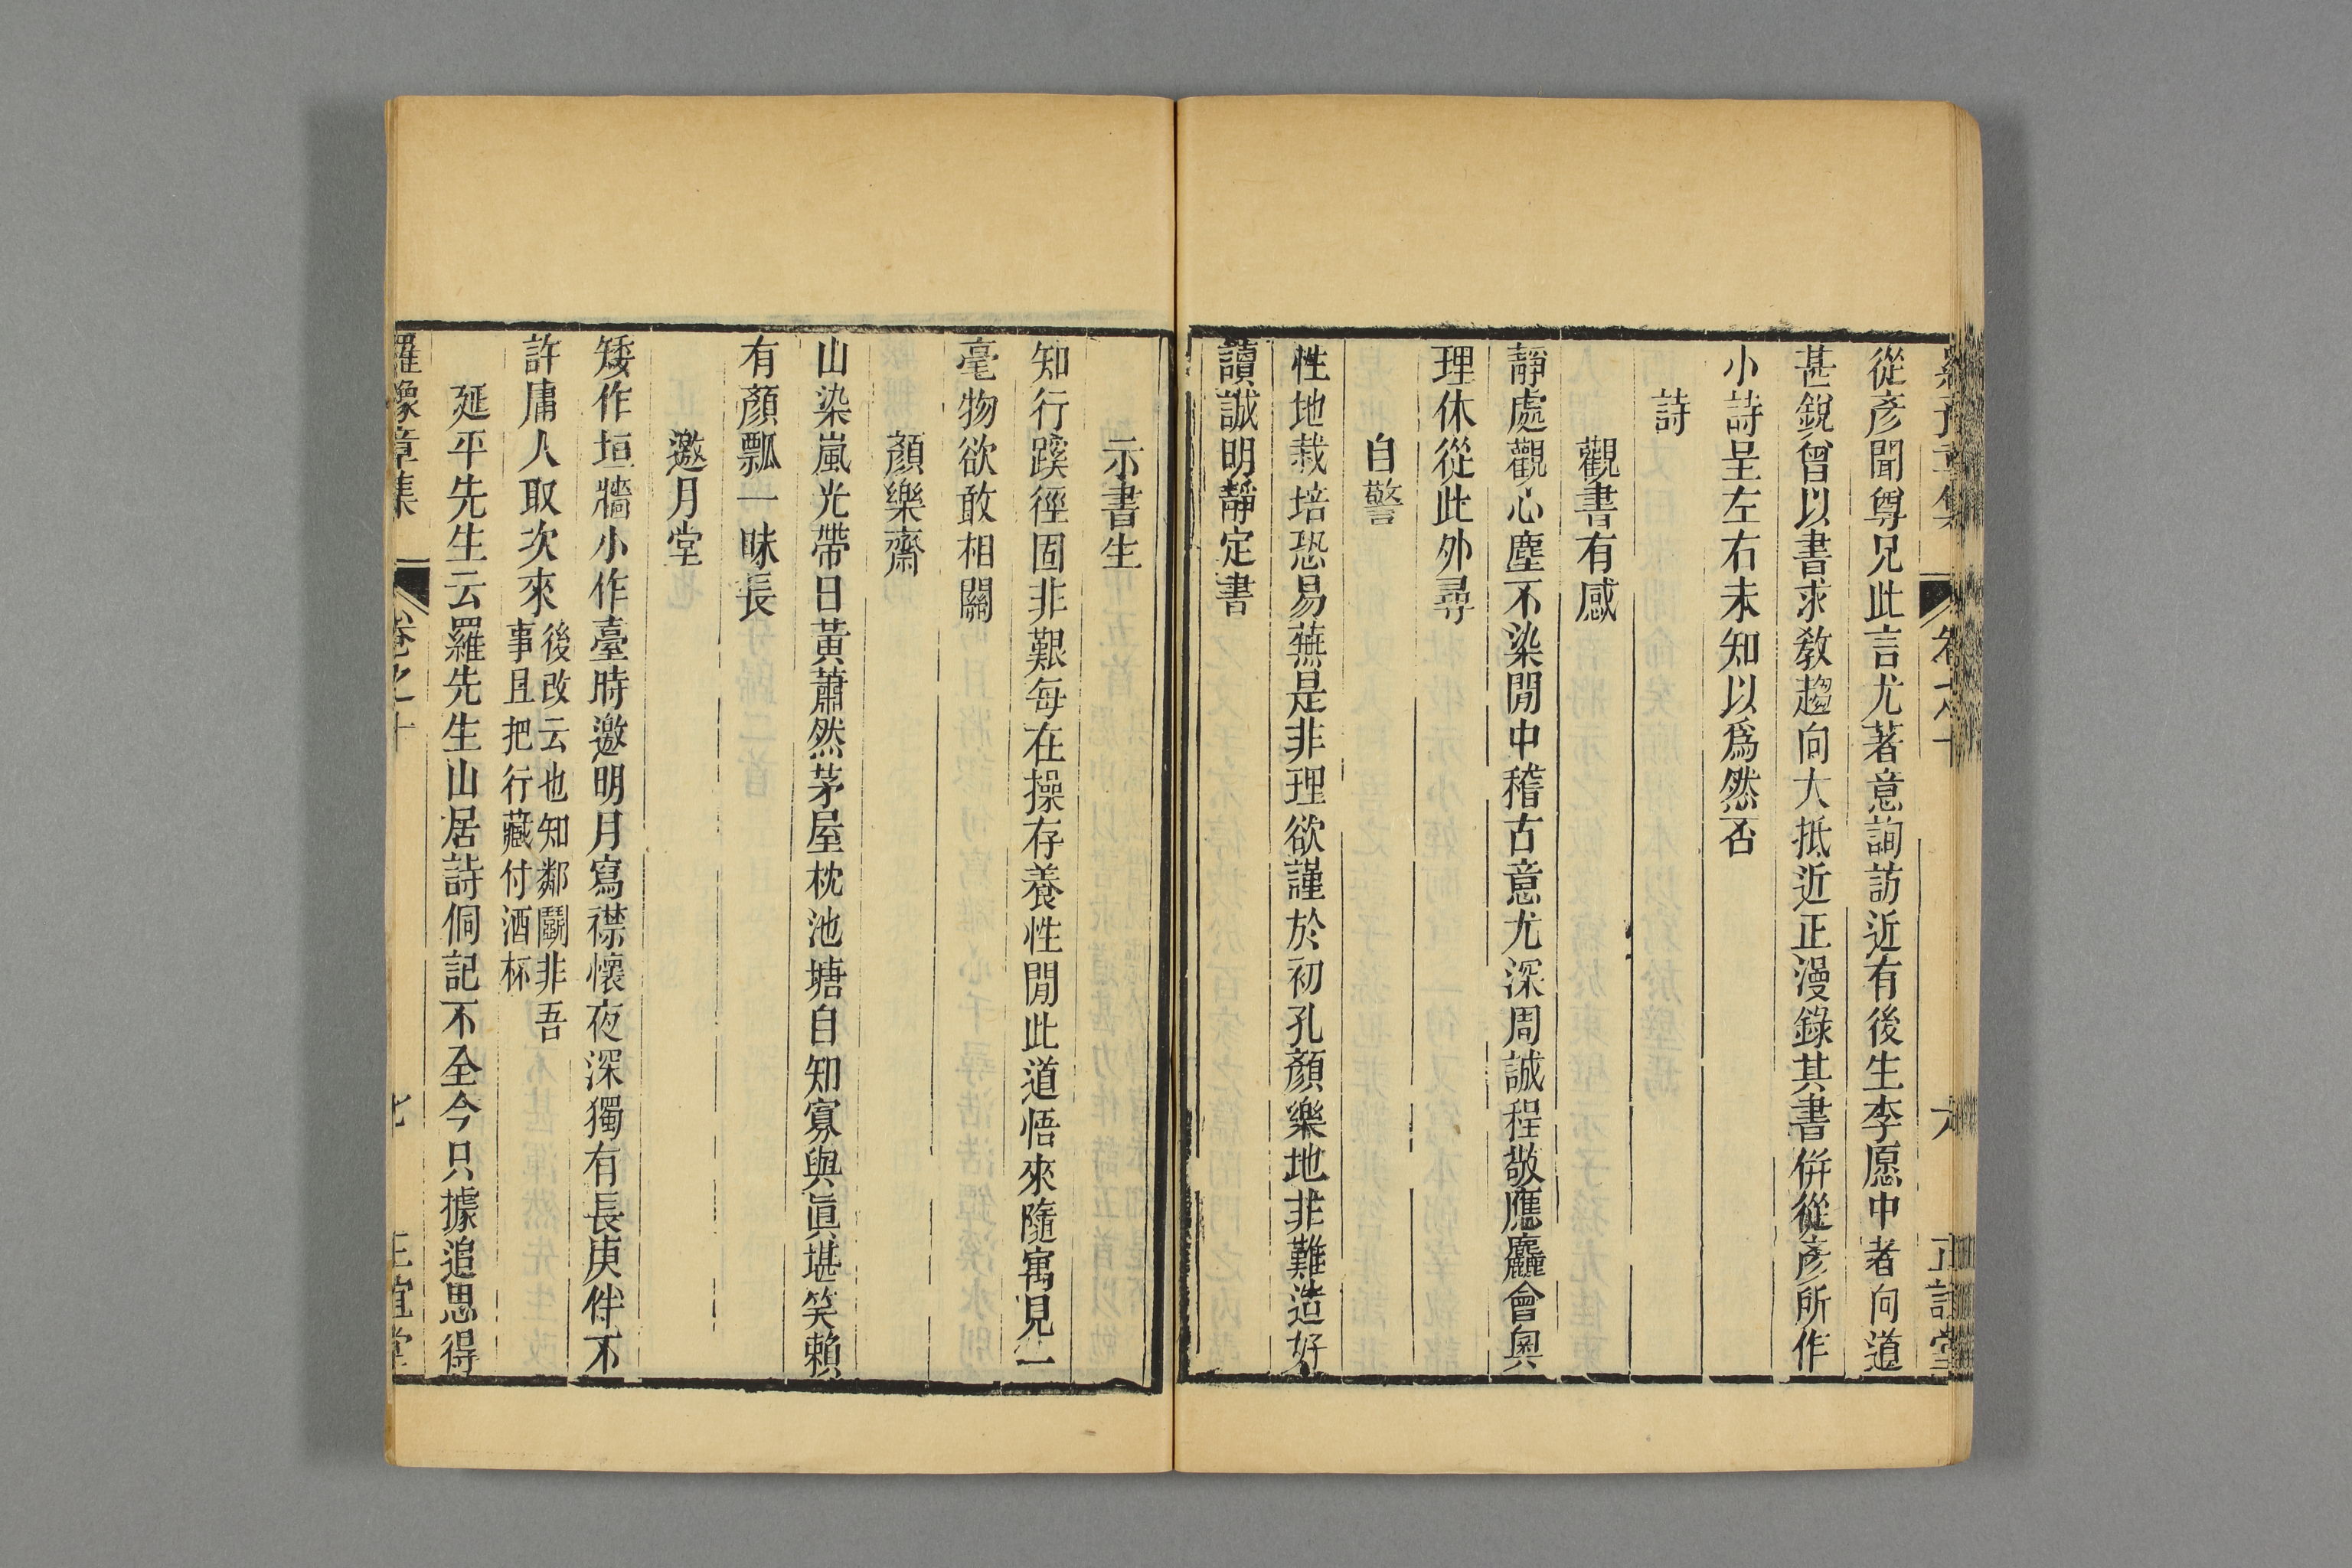 從彥聞尊兄此言尤著意詢訪近有後生李愿中者向道
甚銳曾以書求敎趨向大抵近正漫錄其書併從彥所作
小詩呈左右未知以爲然否
詩
觀書有感
靜處觀心塵不染閒中稽古意尤深周誠程敬應麤會奧
理休從此外尋
自警
性地栽培恐易蕪是非理欲謹於初孔顏樂地非難造好
讀誠明靜定書
示書生
知行蹊徑固非艱每在操存養性閒此道悟來隨寓見一
毫物欲敢相關
顏樂齋
山染嵐光帶日黃蕭然茅屋枕池塘自知寡與眞堪笑賴
有顏瓢一味長
邀月堂
矮作垣牆小作臺時邀明月寫襟懷夜深獨有長庚伴不
許庸人取次來後改云也知鄰鬭非吾
事且把行藏付酒杯
延平先生云羅先生山居詩侗記不全今只據追思得
羅豫章集
卷之十
七
正誼堂